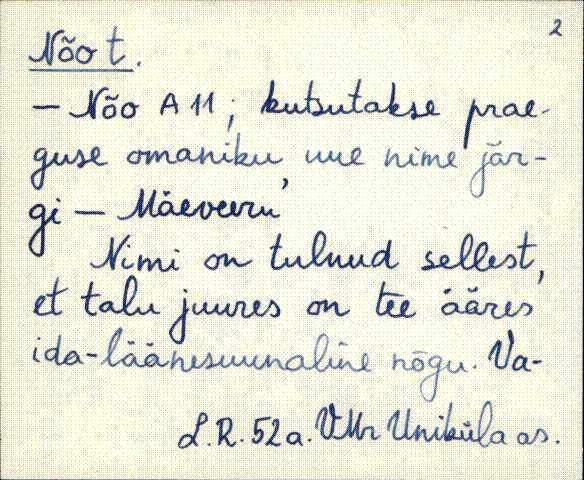 2
Nõo t.
– Nõo A 11; kutsutakse prae-
guse omaniku uue nime jär-
gi – Mäeveeru
Nimi on tulnud sellest,
et talu juures on tee ääres
ida-läänesuunaline nõgu. Va-
L.R. 52 a. VMr Uniküla as.